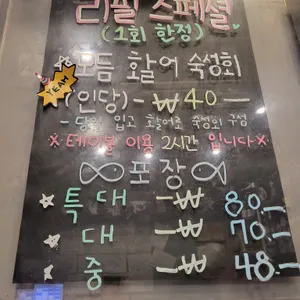 리필 스페셜
(1회 한정)
모듬 활어 숙성회
YEAH
(인당) - ₩ 40 -
- 당일 입고 활어로 숙성회 구성
※ 테이블 이용 2시간 입니다 ※
포장
특대 - ₩ 80.-
대 - ₩ 70.-
중 ₩ 48.-